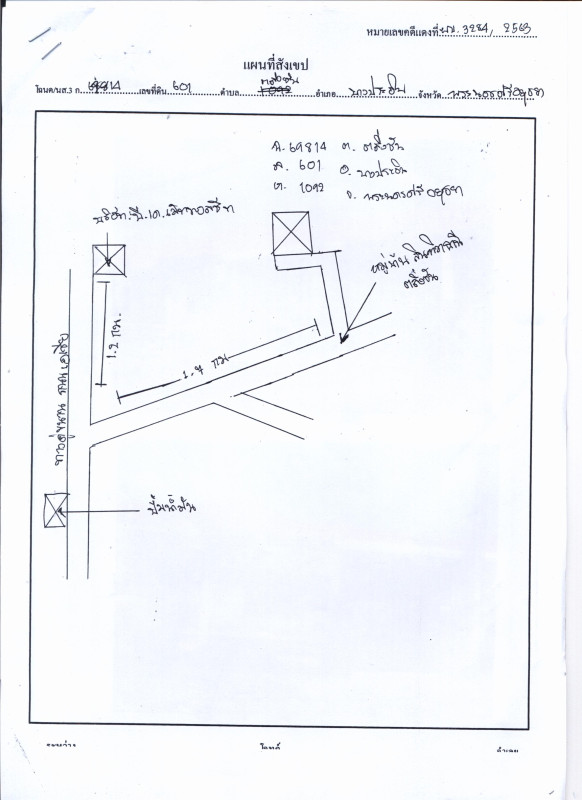 หมายเลขคดีแดงที่ ผบ. 3284, 2563
แผนที่สังเขป
โฉนด/นส.3 ก. 69814 เลขที่ดิน 601 ตำบล ตลิ่งชัน อำเภอ บางปะอิน จังหวัด พระนครศรีอยุธยา
ฉ. 69814 ต. ตลิ่งชัน
ล. 601 อ. บางปะอิน
1092 จ. พระนครศรีอยุธยา
หมู่บ้าน
ตลิ่งชัน
1.2 กม.
1.7 กม
ทางคู่ขนาน ถนนเอเซีย
ปั๊มน้ำมัน
ระหว่าง โจทก์ จำเลย